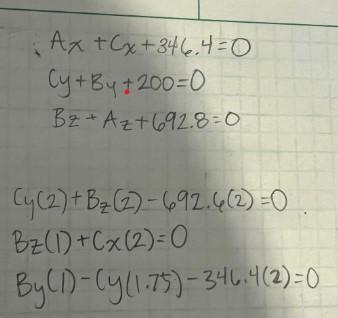 Ax + Cx + 346.4 = 0
Cy + By + 200 = 0
Bz + Az + 692.8 = 0
Cy(2) + Bz(2) - 692.6(2) = 0
Bz(1) + Cx(2) = 0
By(1) - Cy(1.75) - 346.4(2) = 0